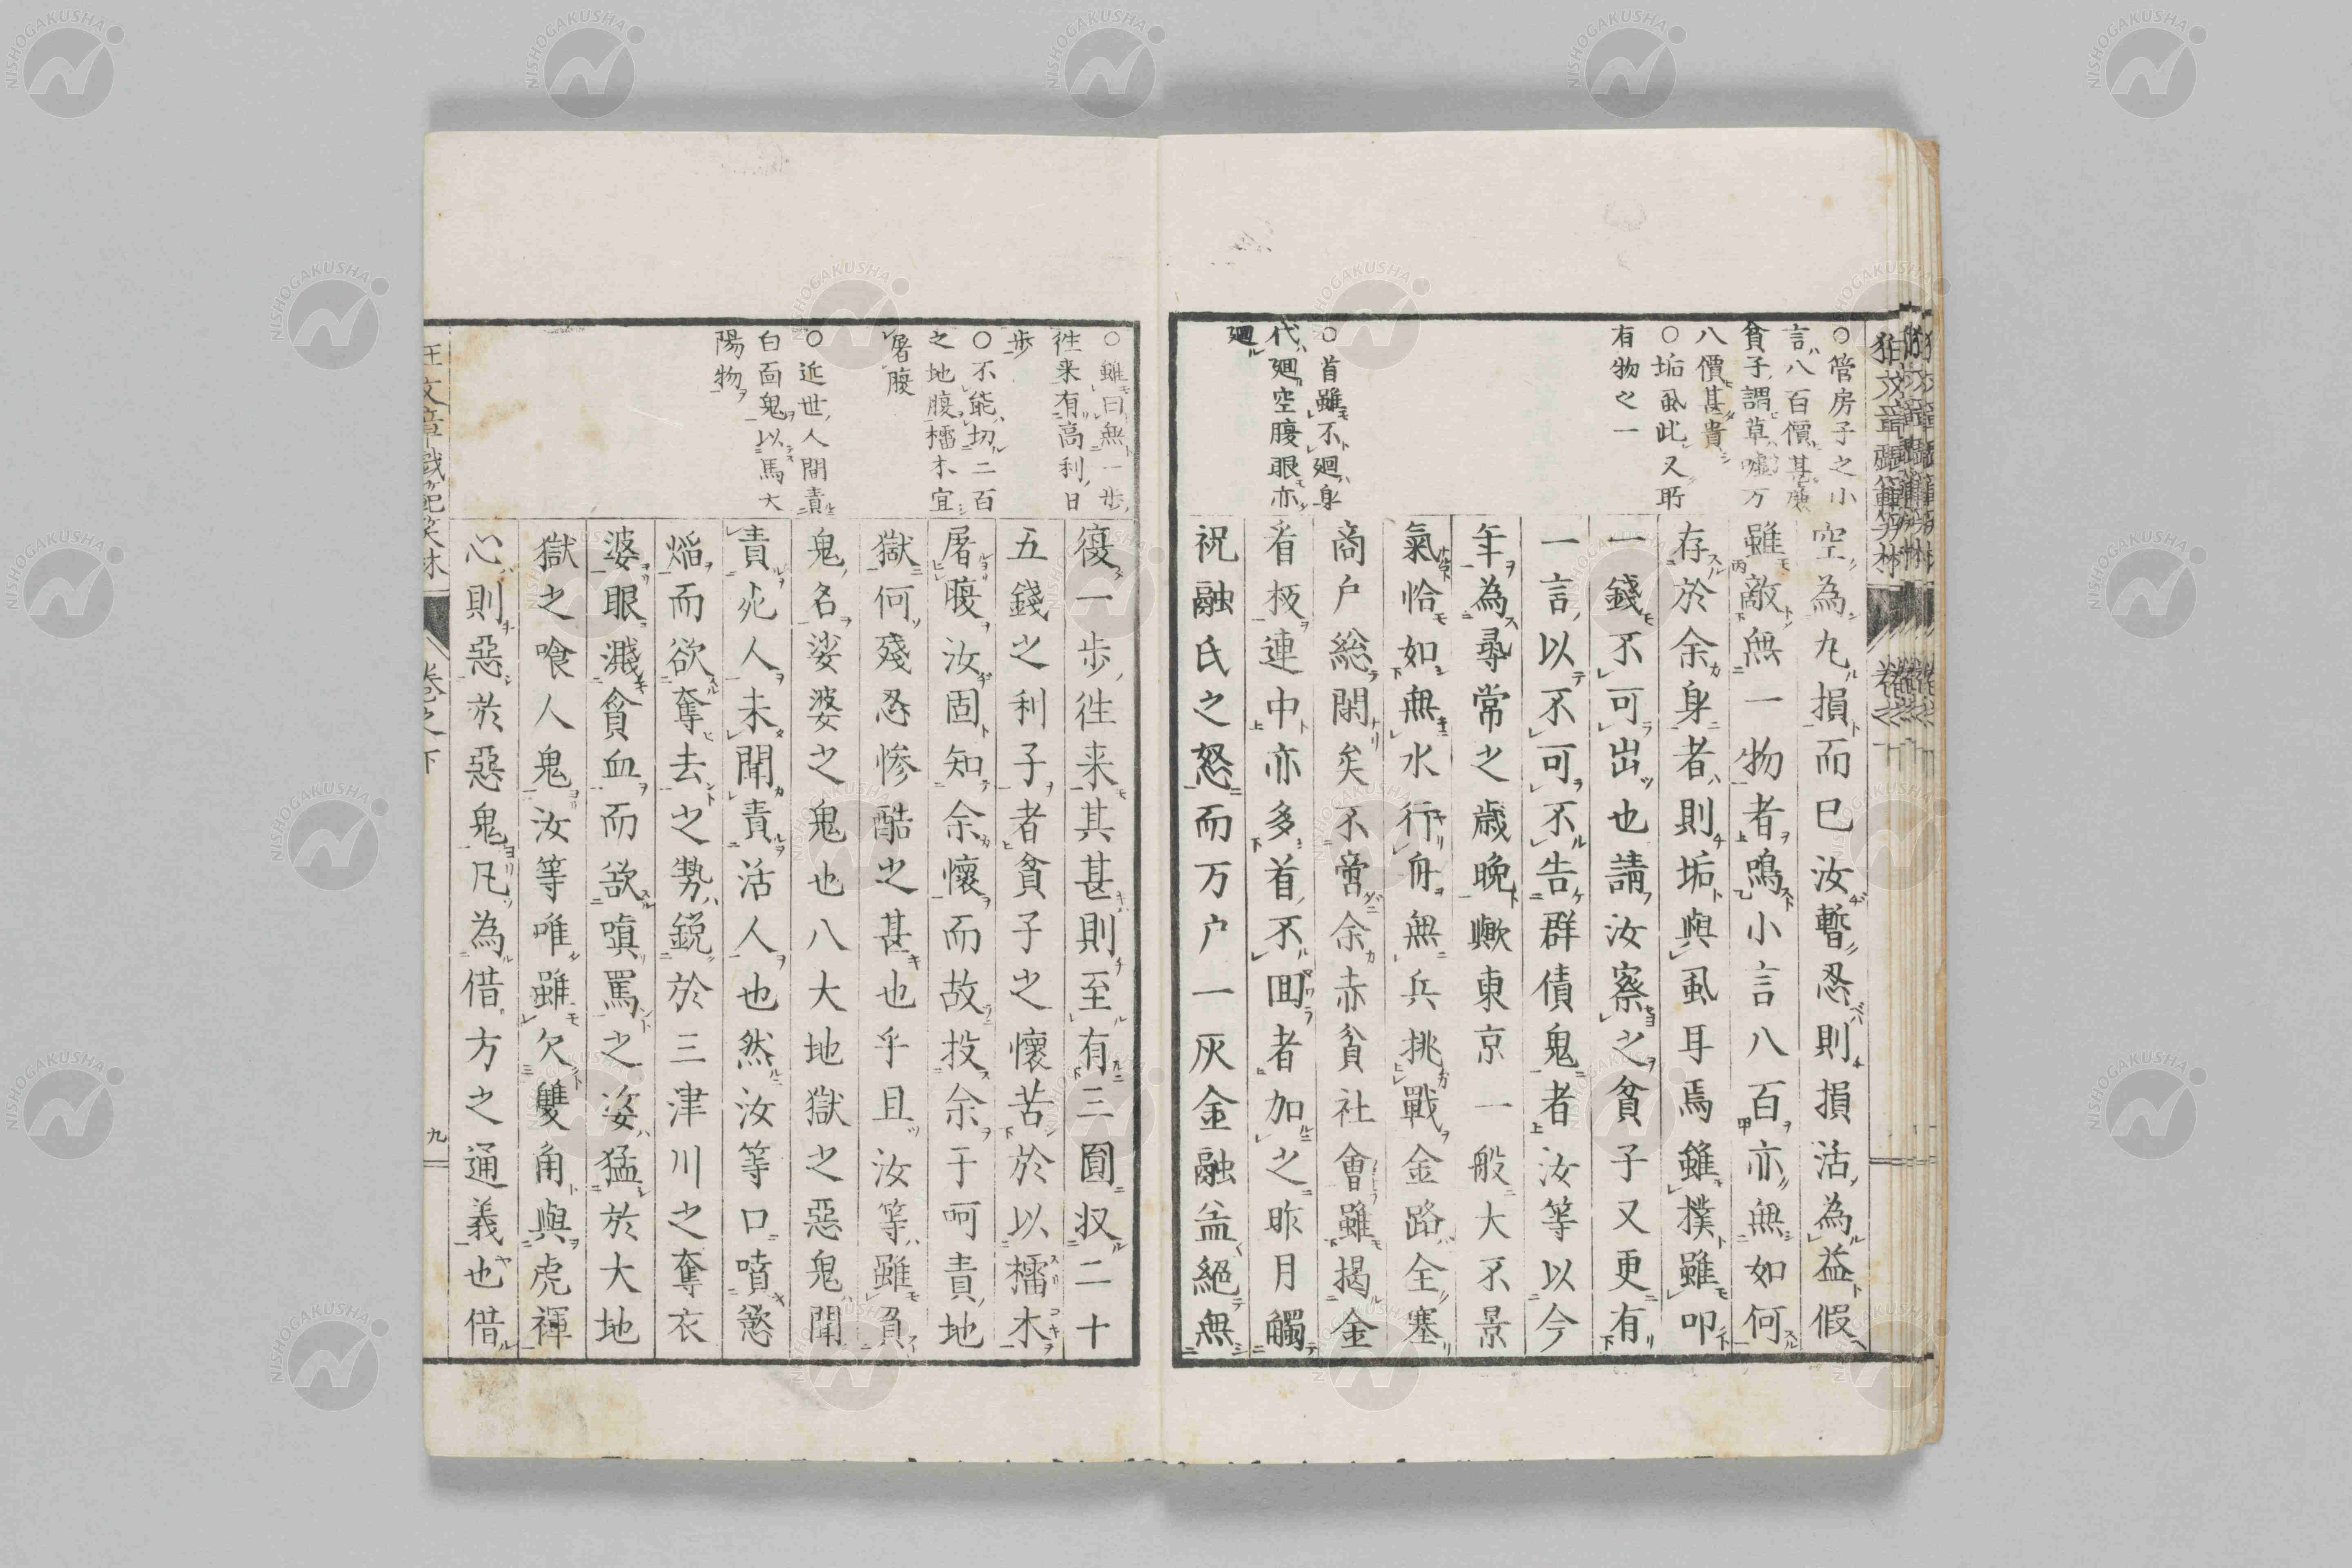 ○管房子之小
言八百價甚廉
貧子謂草嘘万
八價甚貴
○垢虱此又所
有物之一
○首雖不廻身
代廻空腹眼亦
廻
空為九損而已汝暫忍則損活為益假
雖敵無一物者鳴小言八百亦無如何
存於余身者則垢與虱耳焉雖撲雖叩
一錢不可出也請汝察之貧子又更有
一言以不可不告群債鬼者汝等以今
年為尋常之歳晩歟東京一般大不景
氣恰如無水行舟無兵挑戰金路全塞
商戸総閉矣不啻余赤貧社會雖揭金
看板連中亦多首不回者加之昨月觸
祝融氏之怒而万户一灰金融益絕無
○雖曰無一步
徃来有高利日
步
○不能切二百
之地腹檑木宜
屠腹
○近世人間責
白面鬼以馬大
陽物
復一步徃来其甚則至有三圓収二十
五錢之利子者貧子之懷苦於以檑木
屠腹汝固知余懷而故投余于呵責地
獄何殘忍慘酷之甚也乎且汝等雖負
鬼名娑婆之鬼也八大地獄之惡鬼聞
責死人未聞責活人也然汝等口噴慾
焔而欲奪去之勢鋭於三津川之奪衣
婆眼濺貧血而欲嗔罵之姿猛於大地
獄之喰人鬼汝等唯雖欠雙角與虎褌
心則惡於惡鬼凡為借方之通義也借
狂文章戯範笑林
卷之下
九
NISHOGAKUSHA